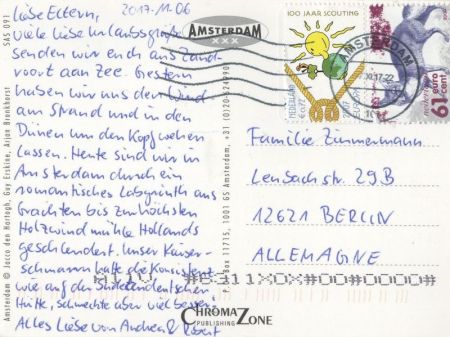 2017-11-06
Liebe Eltern,
viele liebe Urlaubsgrüße
senden wir euch aus Zand-
voort aan Zee. Gestern
haben wir uns den Wind
am Strand und in den
Dünen um den Kopf wehen
lassen. Heute sind wir in
Amsterdam durch ein
romantisches Labyrinth aus
Grachten bis zur höchsten
Holzwindmühle Hollands
geschlendert. Unser Kaiser-
schmarrn hatte die Konsistenz
wie auf der
Hütte, schmeckte aber viel besser.
Alles Liebe von Andrea & Robert
SAS 091
Amsterdam © Jacco den Hartogh, Guy Erskine, Arjan Bronkhorst
AMSTERDAM
XXX
P.O. Box 11715, 1001 GS Amsterdam, +31 (0)20
CHROMAZONE
PUBLISHING
100 JAAR SCOUTING
NEDERLAND
AMSTERDAM
nederland
61 euro
cent
Familie Zimmermann
Lensbachstr. 29B
12621 BERLIN
ALLEMAGNE
#6311X0X#00#0000#